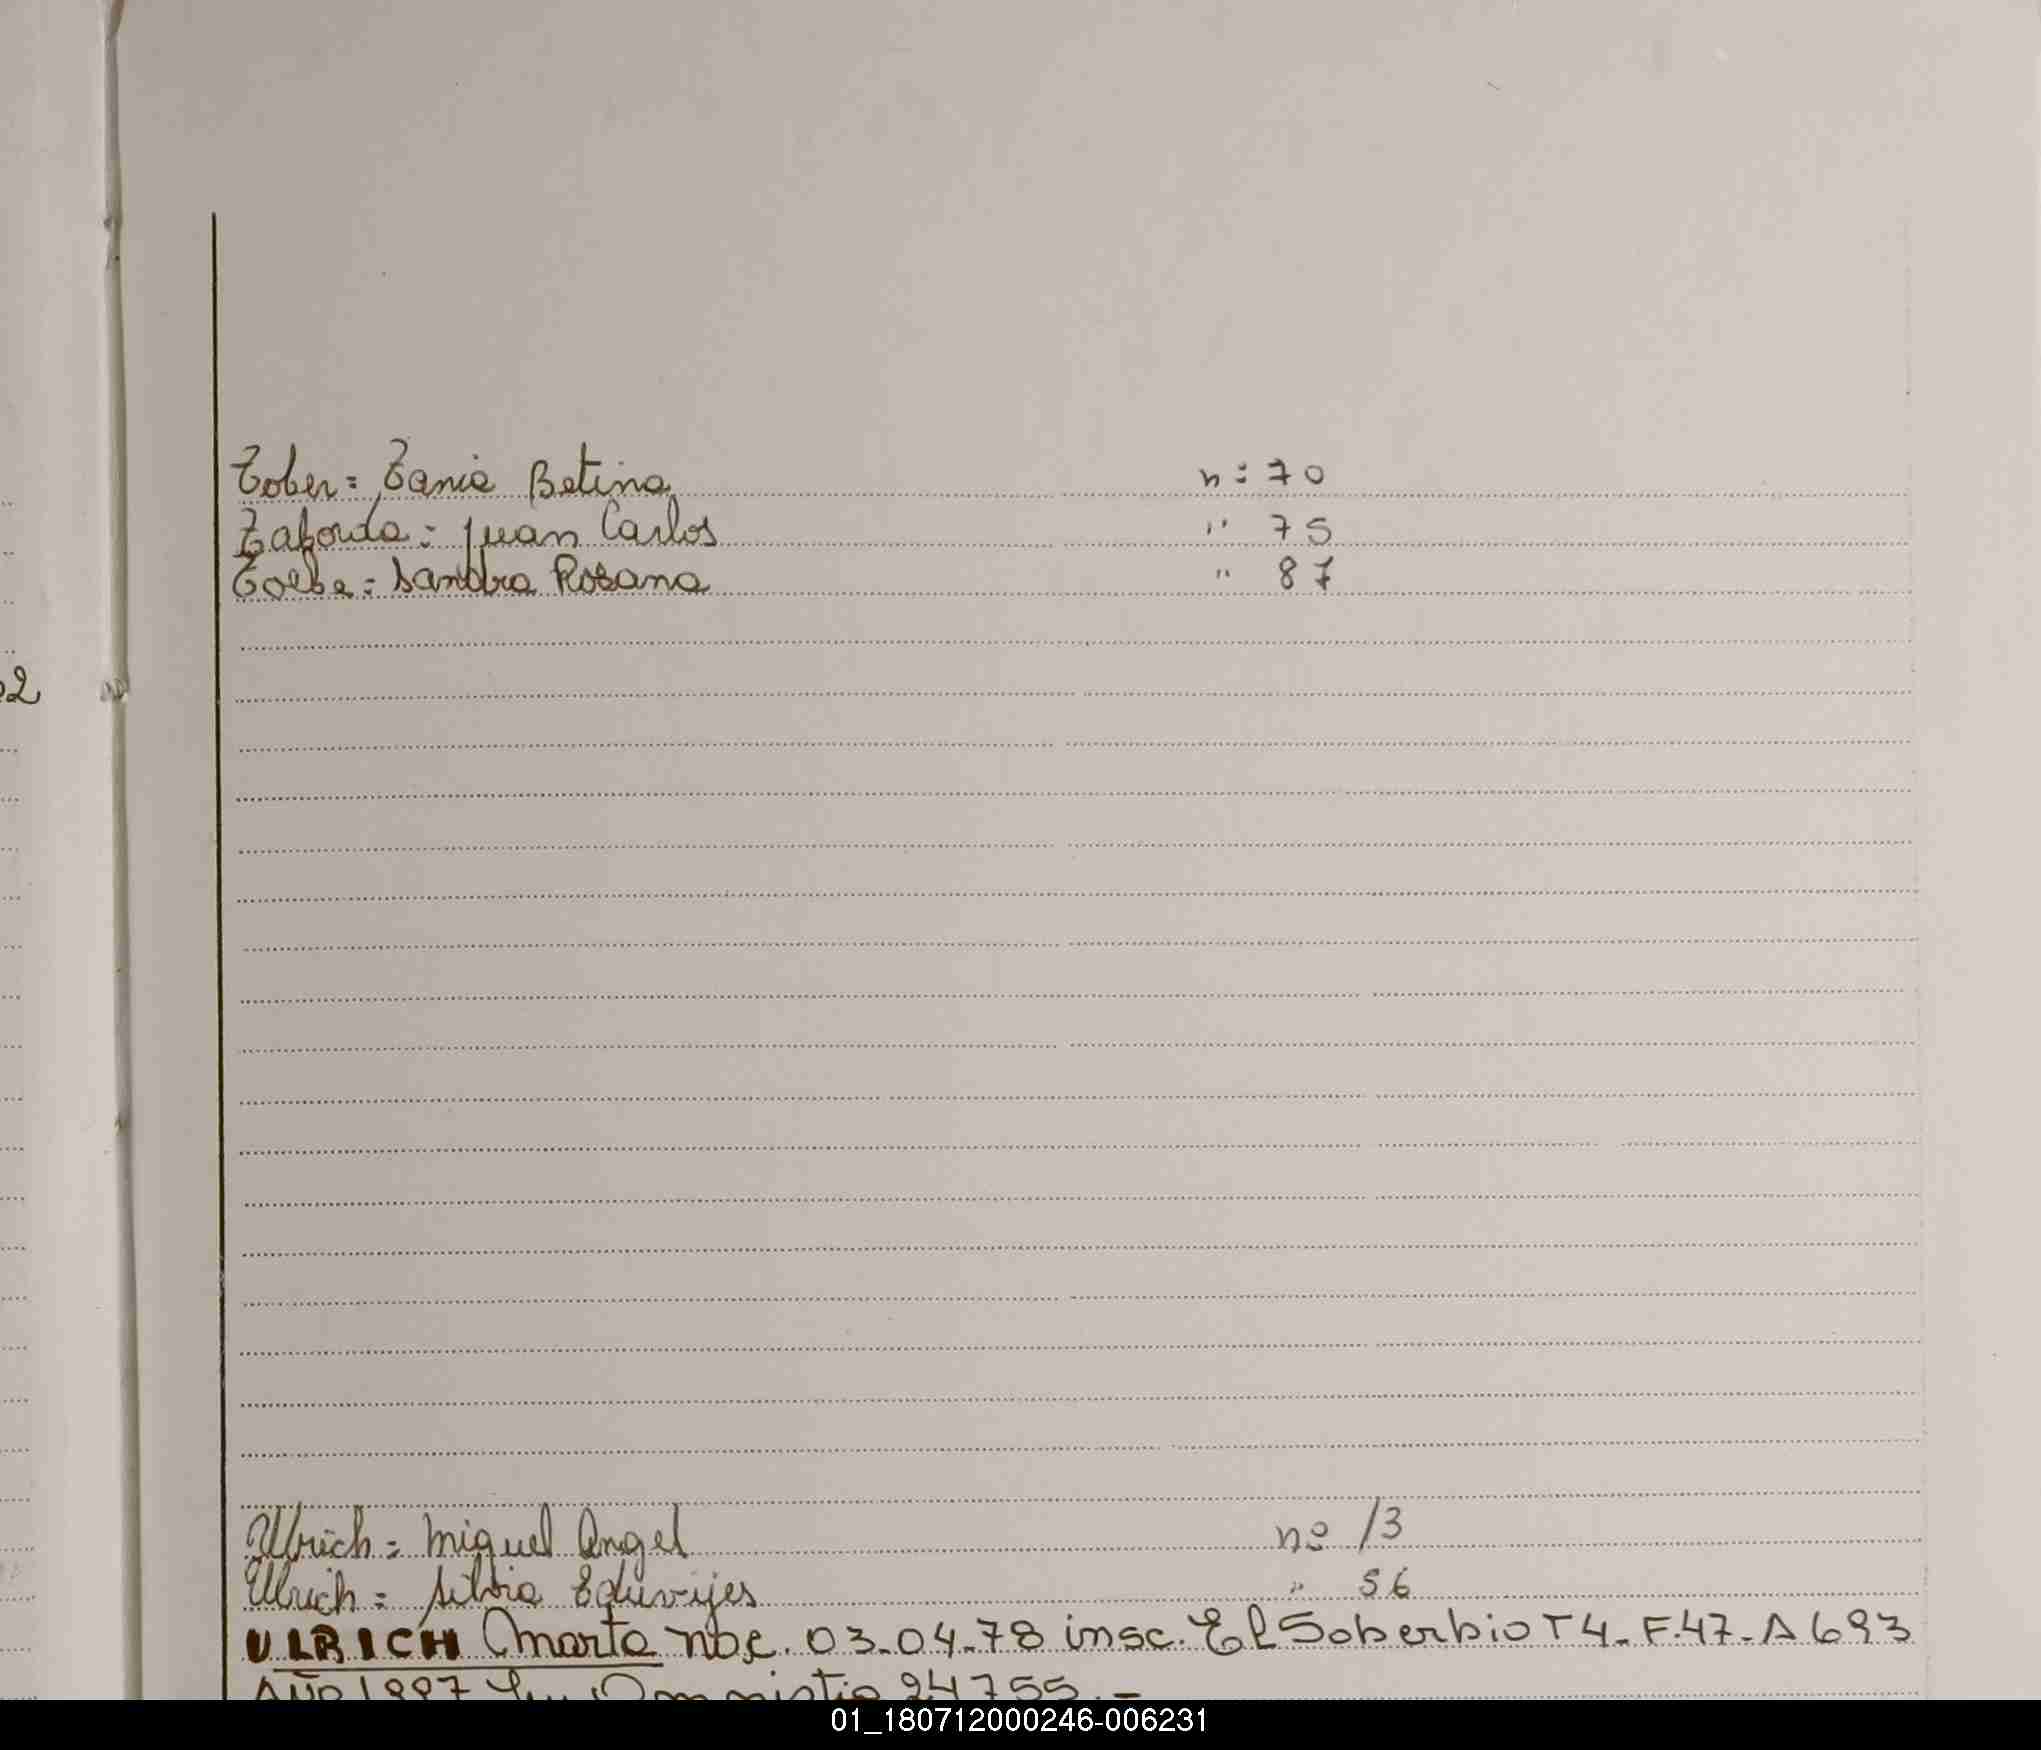 Tober = Tania Betina n: 70
Taborda = Juan Carlos " 75
Tolbe = Sandra Rosana " 87
22
Ulrich = Miguel Angel nº 13
Ulrich = Silvia Eduvijes " 56
ULRICH Marta nac. 03-04-78 insc. El Soberbio T4-F.47-A 693
AÑO 1997 24755.-
01_180712000246-006231